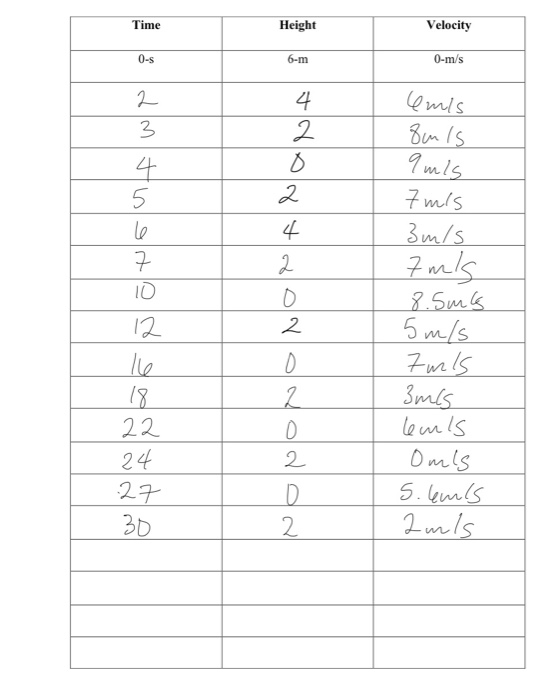 Time Height Velocity
0-s 6-m 0-m/s
2 4 6m/s
3 2 8m/s
4 0 9m/s
5 2 7m/s
6 4 3m/s
7 2 7m/s
10 0 8.5m/s
12 2 5m/s
16 0 7m/s
18 2 3m/s
22 0 6m/s
24 2 0m/s
27 0 5.6m/s
30 2 2m/s